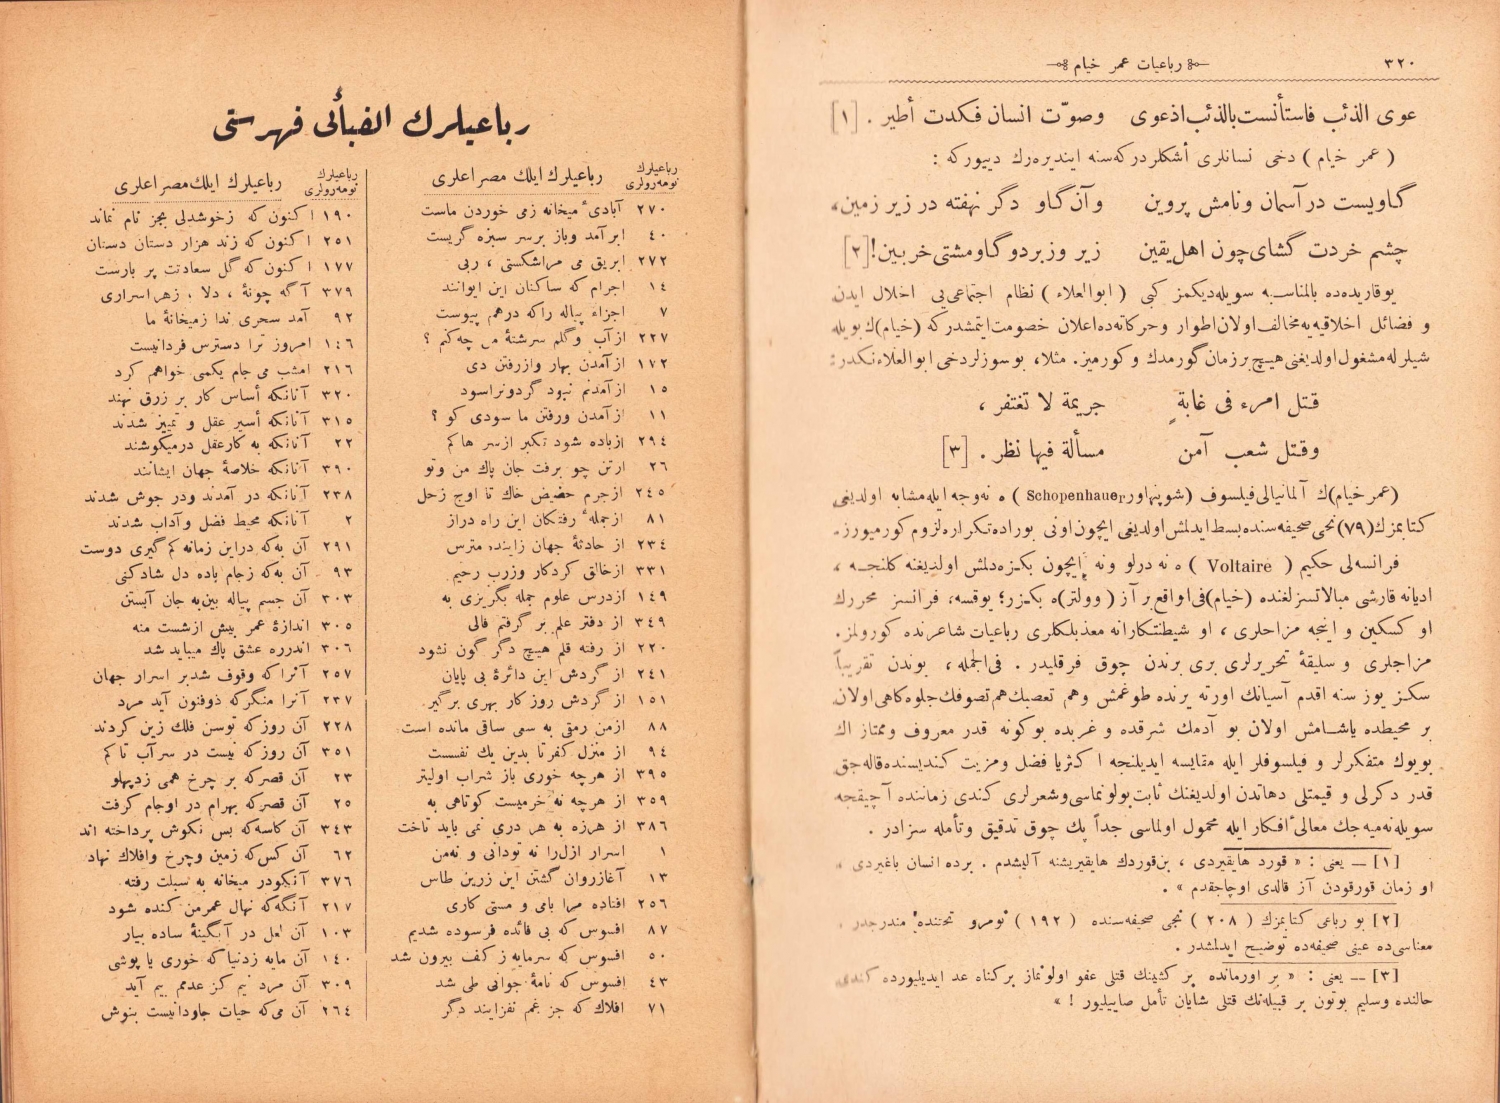 ٣٢٠ رباعیات عمر خیام
عوی الذئب فاستأنست بالذئب اذعوی وصوّت انسان فکدت أطیر . [١]
( عمر خیام ) دخی نسانلری أشکلر درکه‌سنه ایندیره‌رك دییورکه :
گاویست در آسمان ونامش پروین وآن گاو دگر نهفته در زیر زمین،
چشم خردت گشای چون اهل یقین زیر وزبر دوگاو مشتی خر بین! [٢]
یوقاریده‌ده بالمناسبه سویله‌دیکمز کبی ( ابوالعلاء ) نظام اجتماعی‌یی اخلال ایدن
و فضائل اخلاقیه‌یه مخالف اولان اطوار وحرکاته‌ده اعلان خصومت ایتمشدر که (خیام)ك بویله
شیلرله مشغول اولدیغنی هیچ بر زمان گورمدك و کورمیز. مثلا، بو سوزلردخی ابوالعلاءنکدر:
قتل امرء فی غابةٍ جریمة لا تغتفر ،
وقتل شعب آمن مسألة فیها نظر . [٣]
(عمر خیام)ك آلمانیالی فیلسوف (شوپنهاور Schopenhauer) ه نه وجه ایله مشابه اولدیغی
کتابمزك (٧٩) نجی صحیفه‌سنده بسط ایدلمش اولدیغی ایچون اونی بوراده تکراره لزوم کورمیورز.
فرانسه‌لی حکیم ( Voltaire ) ه نه درلو ونه ایچون بکزه‌دلمش اولدیغنه کلنجه ،
ادیانه قارشی مبالاتسزلغنده (خیام)فی‌الواقع بر آز (وولتر)ه بکزر؛ یوقسه، فرانسز محررك
او کسکین و اینجه مزاحلری ، او شیطنتکارانه معذبلکلری رباعیات شاعرنده کورولمز.
مزاجلری و سلیقهٔ تحریرلری بری برندن چوق فرقلیدر . فی‌الجمله ، بوندن تقریباً
سکز یوز سنه اقدم آسیانك اورته یرنده طوغمش وهم تعصبك هم تصوفك جلوه‌گاهی اولان
بر محیطده یاشامش اولان بو آدمك شرقده و غربده بوکونه قدر معروف وممتاز اك
بویوك متفکرلر و فیلسوفلر ایله مقایسه ایدیلنجه اکثریا فضل ومزیت کندیسنده قاله‌جق
قدر دکرلی و قیمتلی دهاتدن اولدیغنك ثابت بولونماسی وشعرلری کندی زماننده آچیقجه
سویله‌نه‌میه‌جك معالیٔ افکار ایله محمول اولماسی جداً پك چوق تدقیق وتأمله سزادر .
[١] — یعنی : « قورد هایقیردی ، بن قوردك هایقیریشنه آلیشدم . برده انسان باغیردی ،
او زمان قورقودن آز قالدی اوچاجقدم » .
[٢] بو رباعی کتابمزك ( ٢٠٨ ) نجی صحیفه‌سنده ( ١٩٢ ) نومرو تحتنده مندرجدر .
معناسی‌ده عینی صحیفه‌ده توضیح ایدلمشدر .
[٣] — یعنی : « بر اورمانده بر کشینك قتلی عفو اولونماز برکناه عد ایدیلیورده کندی
حالنده وسلیم بوتون بر قبیله‌نك قتلی شایان تأمل صاییلیور ! »
رباعیلرك الفبائی فهرستی
رباعیلرك نومه‌رولری رباعیلرك ایلك مصراعلری
٢٧٠ آبادیٔ میخانه زمی خوردن ماست
٤٠ ابر آمد وباز برسر سبزه گریست
٢٧٢ ابریق می مراشکستی ، ربی
١٤ اجرام که ساکنان این ایوانند
٧ اجزاء پیاله راکه درهم پیوست
٢٢٧ ازآب وگلم سرشتهٔ من چه کنم ؟
١٧٢ ازآمدن بهار وازرفتن دی
١٥ ازآمدنم نبود گردونراسود
١١ ازآمدن ورفتن ما سودی کو ؟
٢٩٤ ازباده شود تکبر ازسر هاکم
٢٦ ازتن چو برفت جان پاك من وتو
٢٤٥ ازجرم حضیض خاك تا اوج زحل
٨١ ازجملهٔ رفتکان این راه دراز
٢٣٤ از حادثهٔ جهان زاینده مترس
٣٣١ ازخالق کردکار وزرب رحیم
١٤٩ ازدرس علوم جمله بگریزی به
٣٤٩ از دفتر علم بر گرفتم فالی
٢٢٠ از رفته قلم هیچ دگر گون نشود
٢٤١ از گردش این دائرهٔ بی پایان
١٥١ از گردش روزکار بهری برگیر
٨٨ ازمن رمقی به سعی ساقی مانده است
٩٤ از منزل کفرتا بدین یك نفسست
٣٩٥ از هرچه خوری باز شراب اولیتر
٣٥٩ از هرچه نه خرمیست کوتاهی به
٣٨٦ از هرزه به هر دری نمی باید تاخت
١ اسرار ازل‌را نه تودانی و نه‌من
١٣ آغازروان گشتن این زرین طاس
٢٥٦ افتاده مرا بامی و مستی کاری
٨٧ افسوس که بی فائده فرسوده شدیم
٥٠ افسوس که سرمایه ز کف بیرون شد
٤٣ افسوس که نامهٔ جوانی طی شد
٧١ افلاك که جز غم نفزایند دگر
رباعیلرك نومه‌رولری رباعیلرك ایلك مصراعلری
١٩٠ اکنون که زخوشدلی بجز نام نماند
٢٥١ اکنون که زند هزار دستان دستان
١٧٧ اکنون که گل سعادتت پر بارست
٣٧٩ آگه چونهٔ ، دلا ، زهر اسراری
٩٢ آمد سحری ندا زمیخانهٔ ما
١٤٦ امروز ترا دسترس فردانیست
٢١٦ امشب می جام یکمی خواهم کرد
٣٢٠ آنانکه أساس کار بر زرق نهند
٣١٥ آنانکه أسیر عقل و تمییز شدند
٢٢ آنانکه به کارعقل درمیکوشند
٣٩٠ آنانکه خلاصهٔ جهان ایشانند
٢٣٨ آنانکه در آمدند ودر جوش شدند
٢ آنانکه محیط فضل وآداب شدند
٢٩١ آن به که دراین زمانه کم گیری دوست
٩٣ آن به که زجام باده دل شادکنی
٣٠٣ آن جسم پیاله بین به جان آبستن
٣٠٥ اندازهٔ عمر بیش ازشست منه
٣٠٦ اندرره عشق پاك میباید شد
٢٥٧ آنراکه وقوف شدبر اسرار جهان
٢٣٧ آنرا منگرکه ذوفنون آید مرد
٢٢٨ آن روز که توسن فلك زین کردند
٣٥١ آن روزکه نیست در سر آب تاکم
٢٣ آن قصرکه بر چرخ همی زدپهلو
٢٥ آن قصرکه بهرام در اوجام گرفت
٣٤٣ آن کاسه‌که بس نکوش پرداخته اند
٦٢ آن کس‌که زمین وچرخ وافلاك نهاد
٣٧٦ آنکودر میخانه به سبلت رفته
٢١٧ آنگه‌که نهال عمرمن کنده شود
١٠٣ آن لعل در آبگینهٔ ساده بیار
١٤٠ آن مایه زدنیاکه خوری یا پوشی
٣٠٩ آن مرد نیم کز عدمم بیم آید
٢٦٤ آن می‌که حیات جاودانیست بنوش